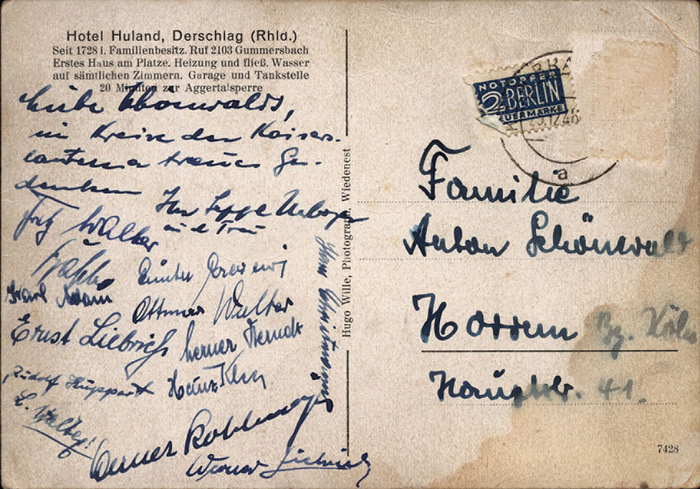 Hotel Huland, Derschlag (Rhld.)
Seit 1728 i. Familienbesitz. Ruf 2103 Gummersbach
Erstes Haus am Platze. Heizung und fließ. Wasser
auf sämtlichen Zimmern. Garage und Tankstelle
20 Minuten zur Aggertalsperre
Liebe Schönwalds,
im Kreise der Kaisers-
lauterna treues Ge-
denken Ihr Seppl
Fritz Walter
Karl Adam
Ottmar Walter
Ernst Liebrich
Werner
Rudolf Huppert Heinz
L. Walter
Werner Kohlmeyer
Werner Liebrich
Hugo Wille, Photograph, Wiedenest
NOTOPFER
2 BERLIN
STEUERMARKE
a
Familie
Anton Schönwald
Horrem Bz. Köln
Hauptstr. 41.
7428